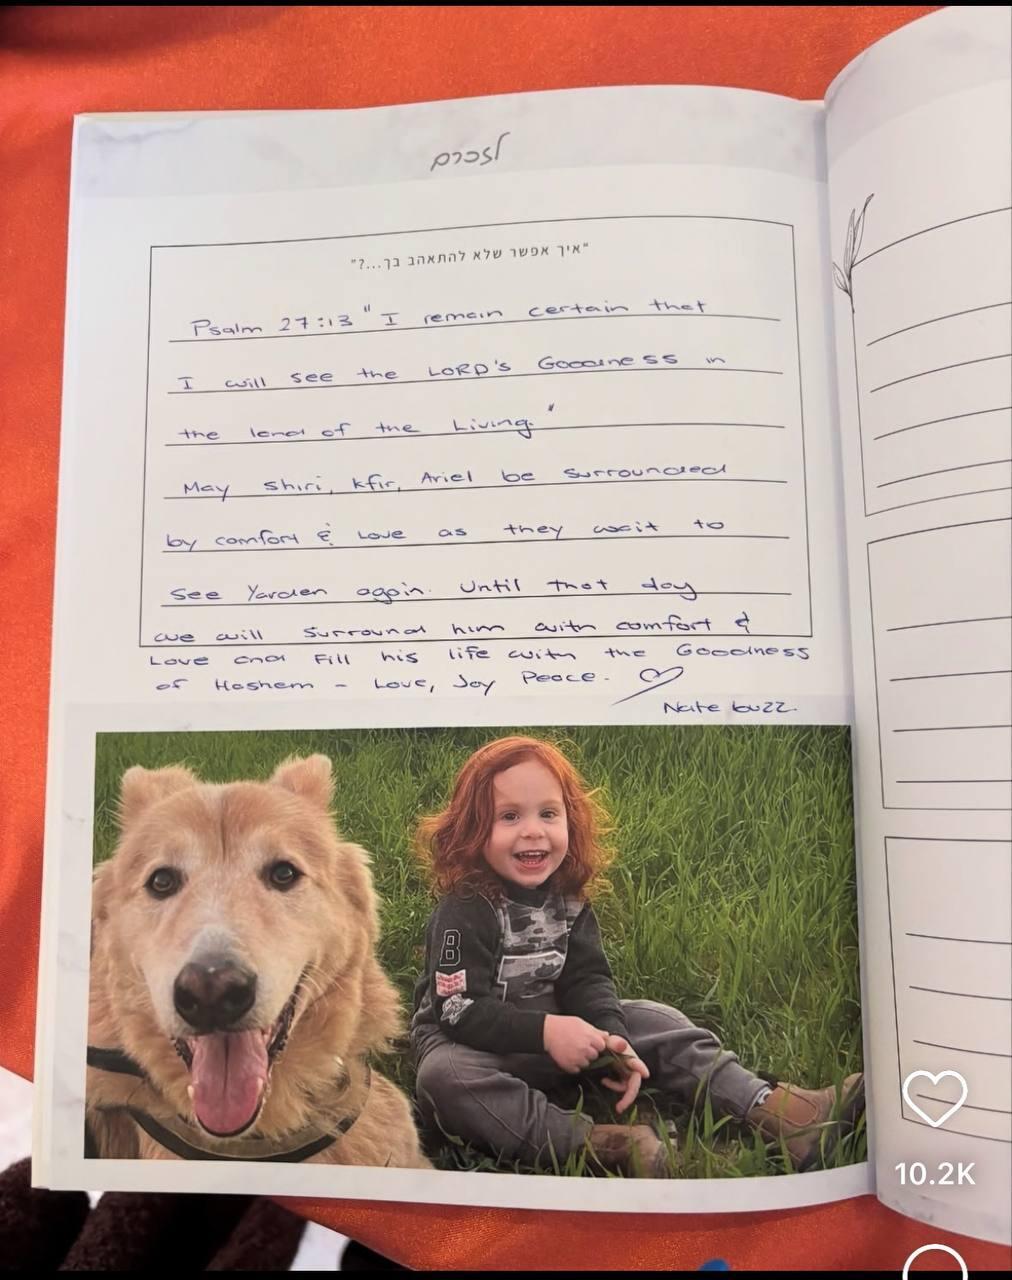 לזכרם
"איך אפשר שלא להתאהב בך...?"
Psalm 27:13 "I remain certain that
I will see the LORD's Goodness in
the land of the Living."
May Shiri, Kfir, Ariel be surrounded
by comfort & Love as they wait to
see Yarden again. Until that day
we will surround him with comfort &
Love and Fill his life with the Goodness
of Hashem - Love, Joy Peace.
Nate buzz.
B
10.2K